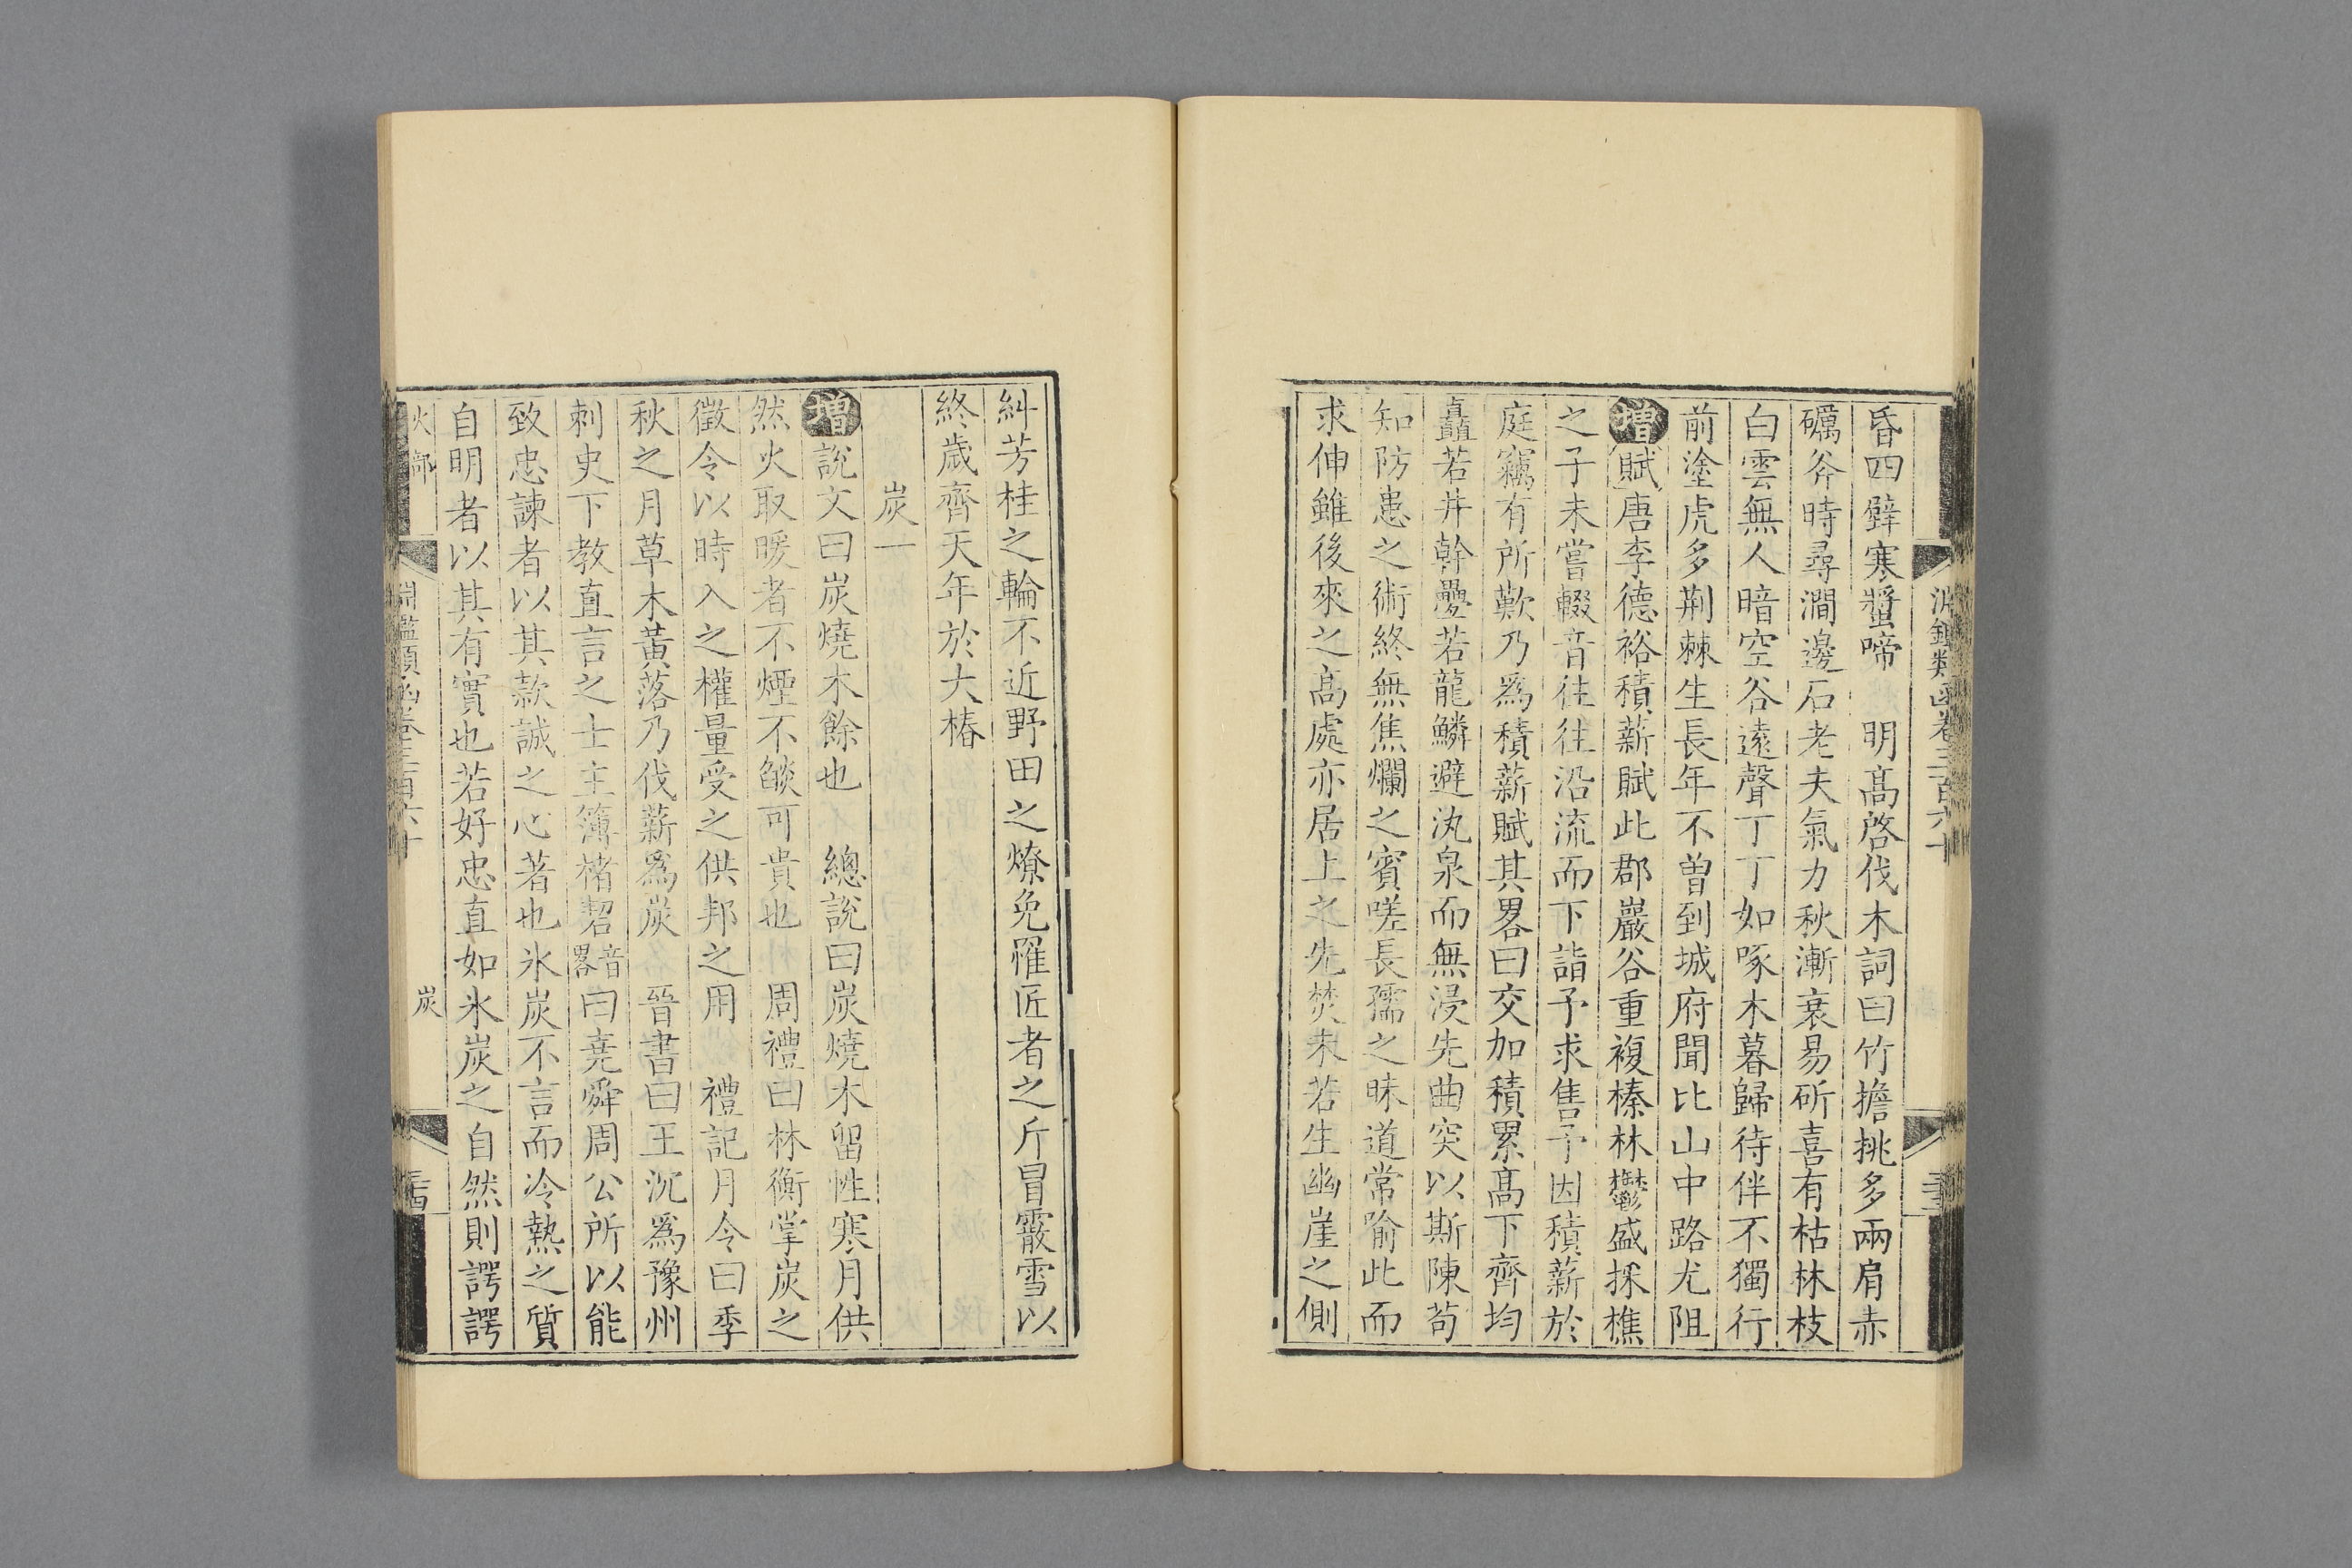 淵鑑類函卷三百六十
昏四壁寒螿啼　明高啓伐木詞曰竹擔挑多兩肩赤
礪斧時尋澗邊石老夫氣力秋漸衰易斫喜有枯林枝
白雲無人暗空谷遠聲丁丁如啄木暮歸待伴不獨行
前塗虎多荆棘生長年不曽到城府聞比山中路尤阻
增賦唐李德裕積薪賦此郡巖谷重複榛林鬱盛採樵
之子未嘗輟音往往沿流而下詣予求售予因積薪於
庭竊有所歎乃爲積薪賦其畧曰交加積累高下齊均
矗若井幹疊若龍鱗避氿泉而無浸先曲突以斯陳苟
知防患之術終無焦爛之賓嗟長孺之昧道常喻此而
求伸雖後來之高處亦居上之先焚未若生幽崖之側
糾芳桂之輪不近野田之燎免罹匠者之斤冒霰雪以
終歲齊天年於大椿
炭一
增說文曰炭燒木餘也　總說曰炭燒木留性寒月供
然火取暖者不煙不燄可貴也　周禮曰林衡掌炭之
徵令以時入之權量受之供邦之用　禮記月令曰季
秋之月草木黃落乃伐薪爲炭　晉書曰王沉爲豫州
刺史下教直言之士主簿褚䂮音畧曰堯舜周公所以能
致忠諫者以其款誠之心著也氷炭不言而冷熱之質
自明者以其有實也若好忠直如氷炭之自然則諤諤
火部　淵鑑類函卷三百六十　炭